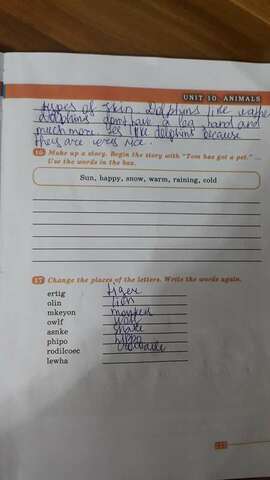 UNIT 10. ANIMALS
types of skin Dolphins like water
dolphins don't have a leg, hand and
much more. Yes I like dolphins because
they are very nice.
16 Make up a story. Begin the story with "Tom has got a pet." ...
Use the words in the box.
Sun, happy, snow, warm, raining, cold
17 Change the places of the letters. Write the words again.
ertig tiger
olin lion
mkeyon monkey
owlf wolf
asnke snake
phipo hippo
rodilcoec crocodile
lewha